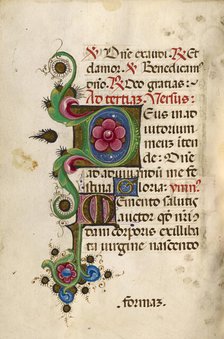 ℣ Dñe exaudi. ℟ Et
clamor. ℣ Benedicam⁹
dño. ℟ Deo gratias:
Ad tertiaz. Versus:
Deus in ad
iutorium
meuz inten
de: Dñe
ad adiuuandū me fe
stina Gloria: ymn⁹.
Memento salutis
auctor qꝫ nr̄i q̄
dam corporis ex illiba
ta uirgine nascendo
formaz.